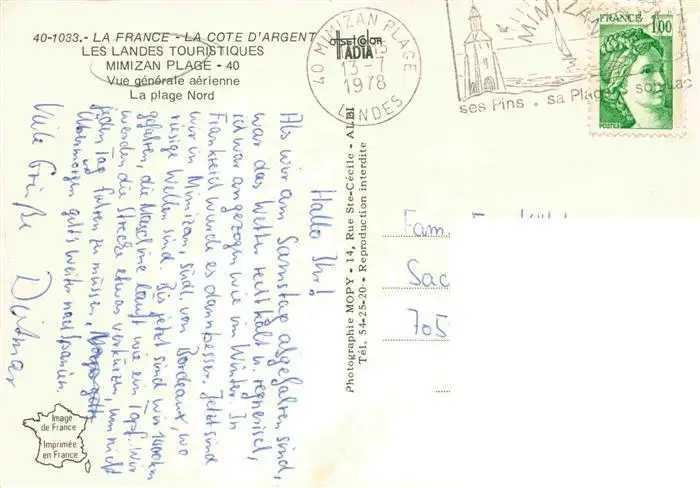 40-1033.- LA FRANCE - LA COTE D'ARGENT
LES LANDES TOURISTIQUES
MIMIZAN PLAGE - 40
Vue générale aérienne
La plage Nord
offset color
IADIA
40 MIMIZAN PLAGE
13-7
1978
LANDES
MIMIZAN
ses Pins . sa Plage son Lac
FRANCE
1,00
POSTES
Photographie MOPY - 14, Rue Ste-Cécile - ALBI
Tél. 54-25-20 - Reproduction interdite
Hallo Ihr!
Als wir am Samstag abgefahren sind,
war das Wetter recht kalt u. regnerisch,
ich war angezogen wie im Winter. In
Frankreich wurde es dann besser. Jetzt sind
wir in Mimizan, südl. von Bordeaux, wo
riesige Wellen sind. Bis jetzt sind wir km
gefahren, die Maschine läuft wie ein Topf. Wir
werden die Strecke etwas verkürzen, um nicht
jeden Tag fahren zu müssen.
Übermorgen geht's weiter nach Spanien.
Viele Grüße
Dietmar
Fam.
Sac
705
Image
de France
Imprimée
en France